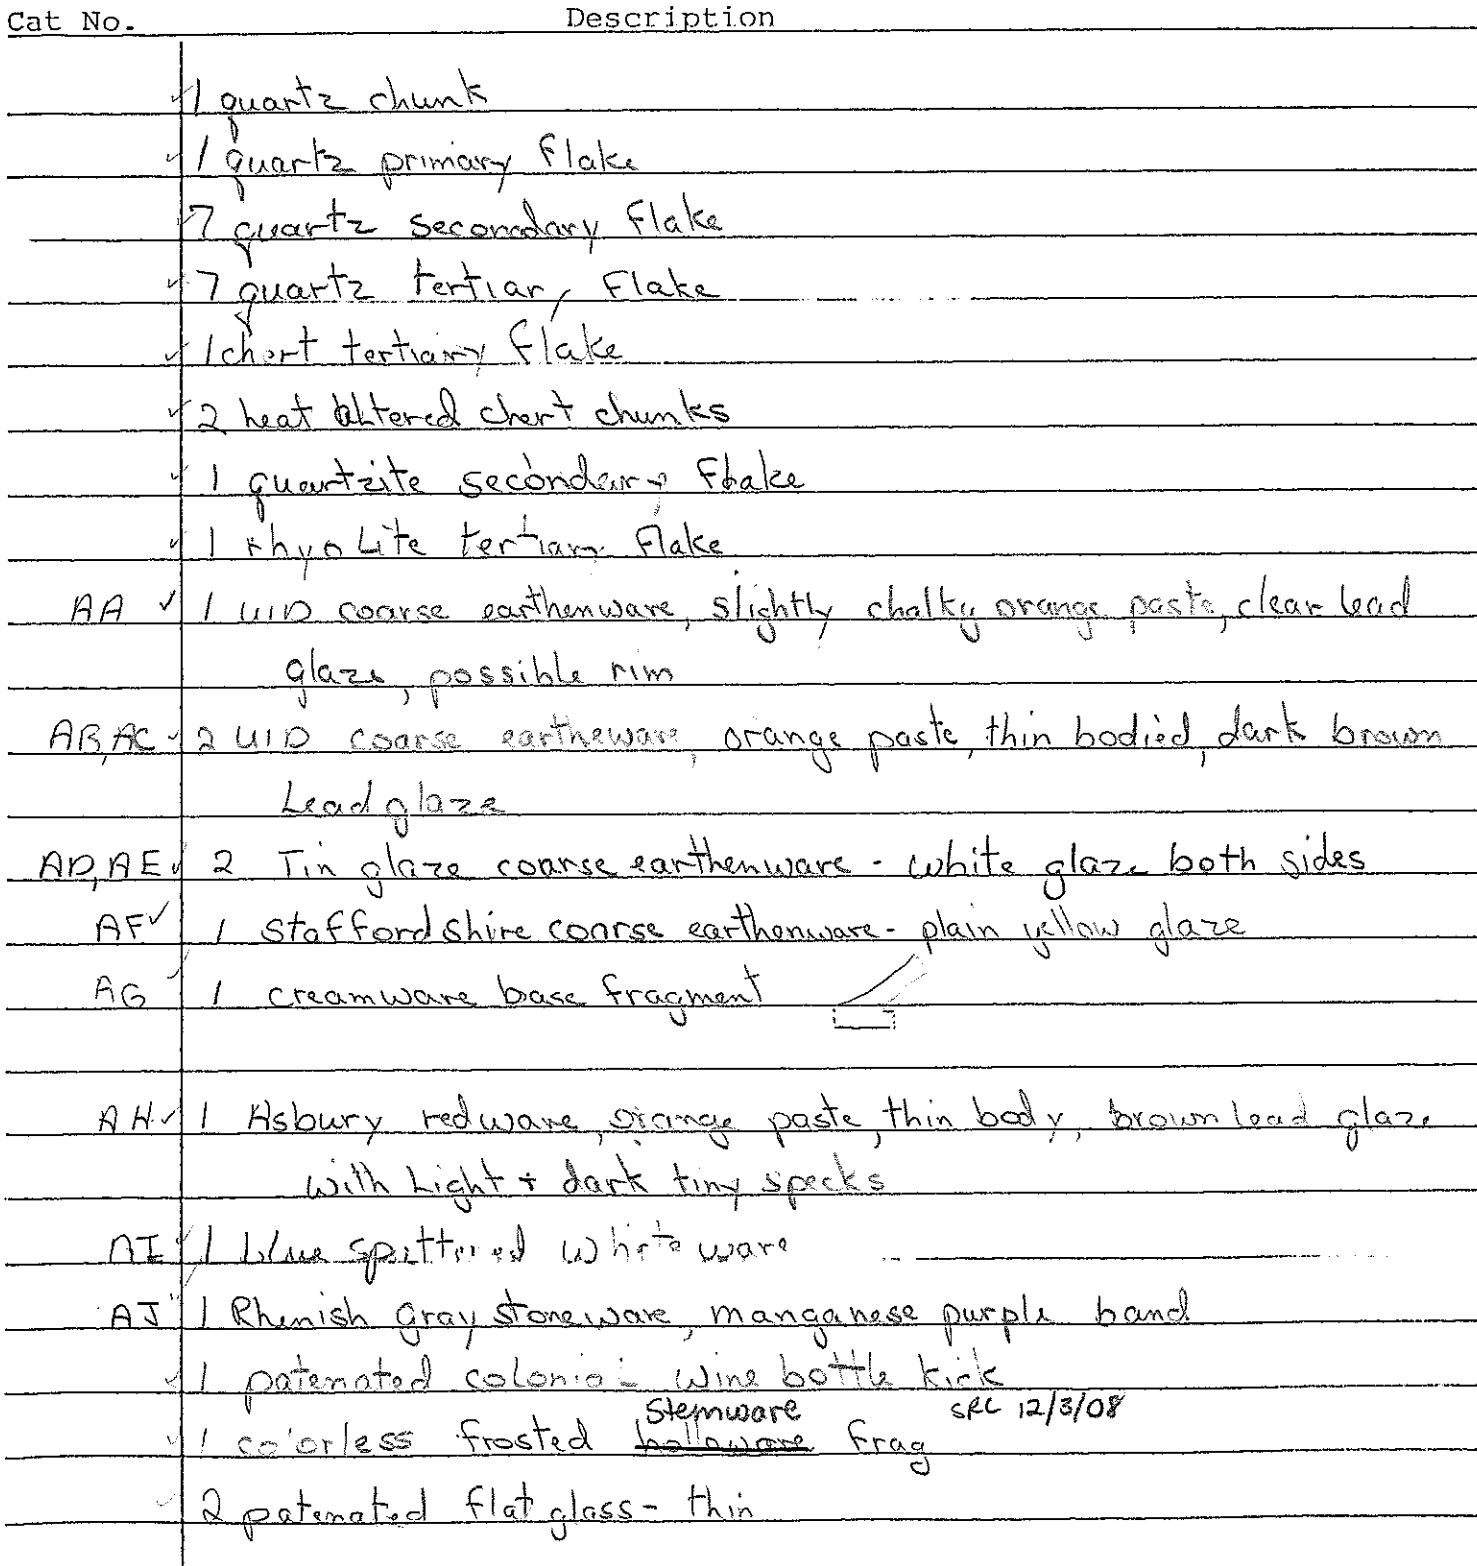 Cat No. Description
✓ 1 quartz chunk
✓ 1 quartz primary flake
✓ 7 quartz secondary flake
✓ 7 quartz tertiary flake
✓ 1 chert tertiary flake
✓ 2 heat altered chert chunks
✓ 1 quartzite secondary flake
✓ 1 rhyolite tertiary flake
AA ✓ 1 UID coarse earthenware, slightly chalky orange paste, clear lead
glaze, possible rim
AB, AC ✓ 2 UID coarse eartheware, orange paste, thin bodied, dark brown
Lead glaze
AD, AE ✓ 2 Tin glaze coarse earthenware - white glaze both sides
AF ✓ 1 Staffordshire coarse earthenware - plain yellow glaze
AG ✓ 1 creamware base fragment
AH ✓ 1 Asbury redware, orange paste, thin body, brown lead glaze
with Light + dark tiny specks
AI ✓ 1 blue spattered whiteware
AJ ✓ 1 Rhenish gray stoneware, manganese purple band
✓ 1 patenated colonial wine bottle kick
Stemware SRC 12/3/08
✓ 1 colorless frosted holloware frag
✓ 2 patenated flat glass - thin